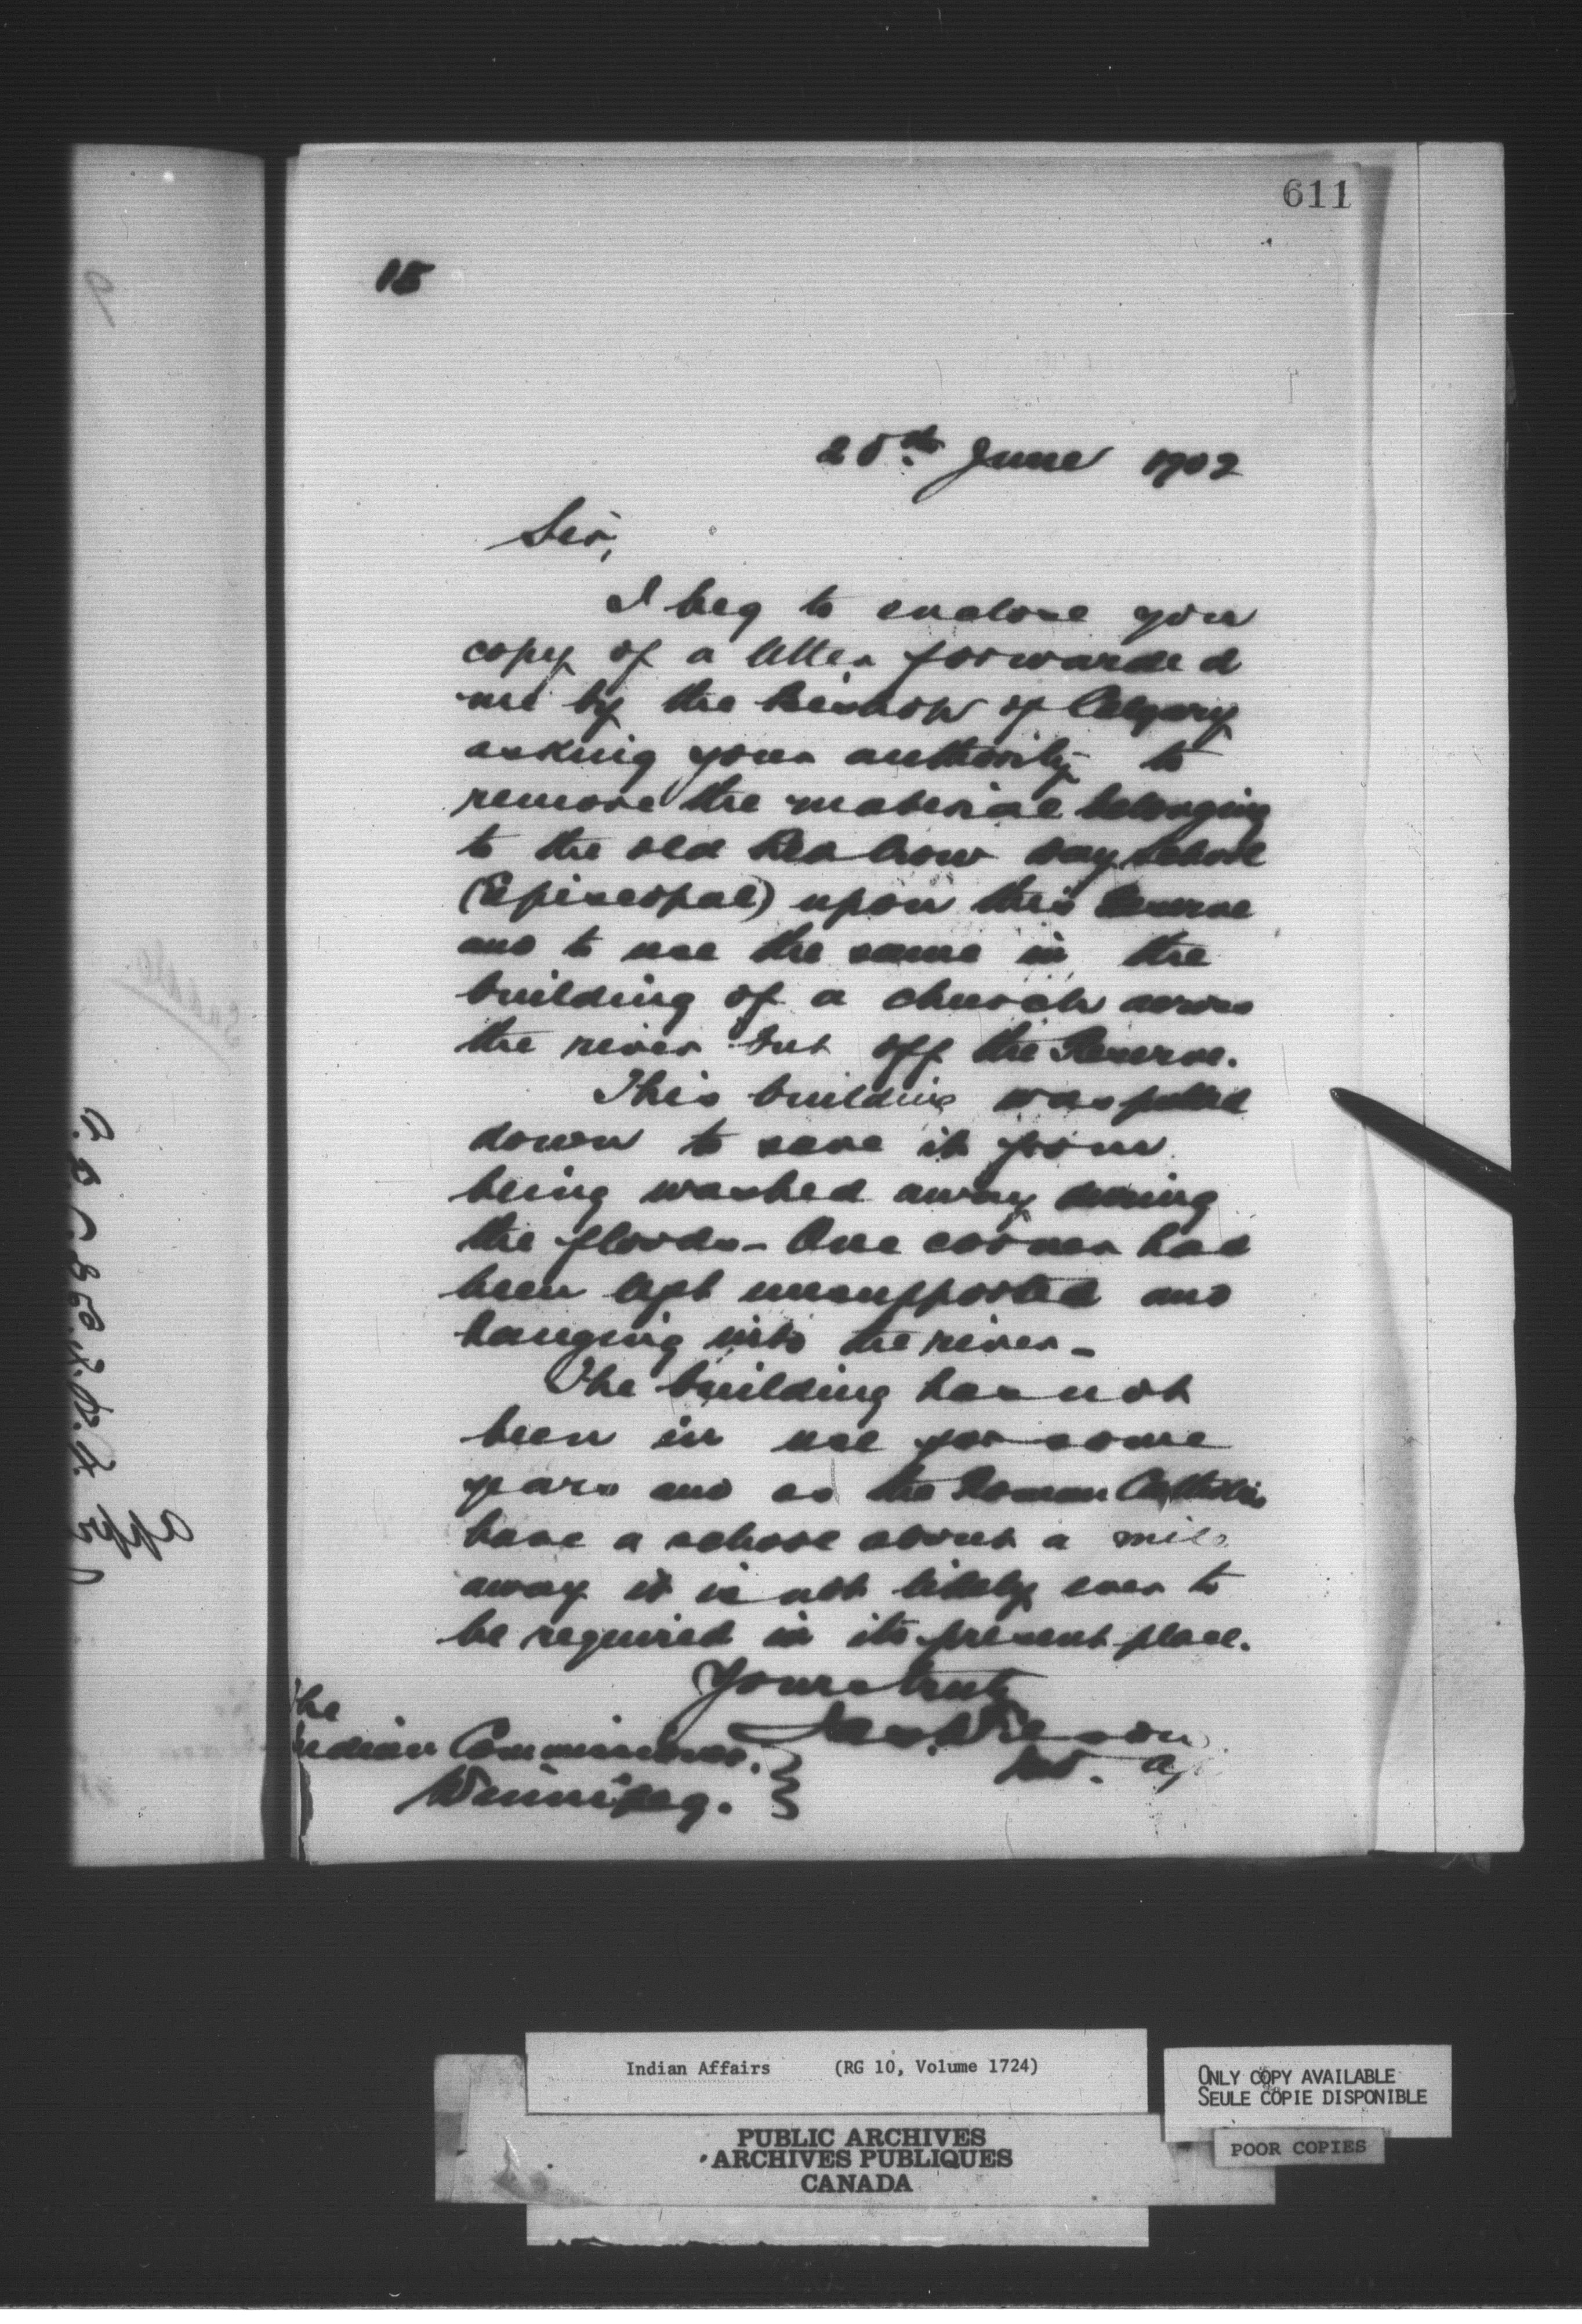 611
15
June 1902
Sir,
I beg to enclose you
copy of a letter forwarded
me by the Bishop of Calgary
asking your authority to
remove the material belonging
to the old Red Crow day school
(Episcopal) upon this Reserve
and to use the same in the
building of a church across
the river but off the Reserve.
This building was pulled
down to save it from
being washed away during
the floods - One corner had
been left unsupported and
hanging into the river -
The building has not
been in use for some
years and as the Roman Catholics
have a school about a mile
away it is not likely ever to
be required in its present place.
Yours truly
Jas. Wilson
Ind. Ag.
The
Indian Commissioner.
Winnipeg.
Indian Affairs (RG 10, Volume 1724)
PUBLIC ARCHIVES
ARCHIVES PUBLIQUES
CANADA
ONLY COPY AVAILABLE
SEULE COPIE DISPONIBLE
POOR COPIES